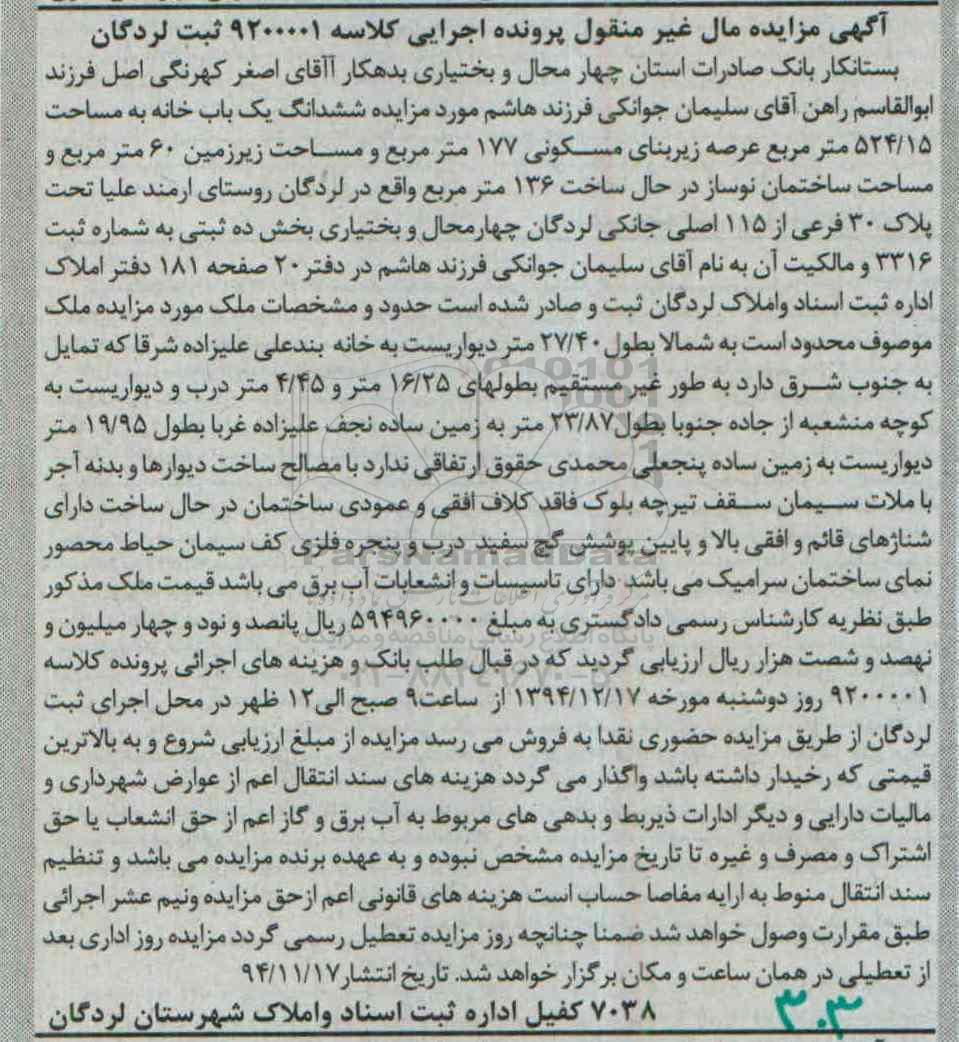 آگهی مزایده مال غیر منقول پرونده اجرایی کلاسه ۹۲۰۰۰۰۱ ثبت لردگان
بستانکار بانک صادرات استان چهار محال و بختیاری بدهکار آآقای اصغر کهرنگی اصل فرزند
ابوالقاسم راهن آقای سلیمان جوانکی فرزند هاشم مورد مزایده ششدانگ یک باب خانه به مساحت
۵۲۴/۱۵ متر مربع عرصه زیربنای مسکونی ۱۷۷ متر مربع و مساحت زیرزمین ۶۰ متر مربع و
مساحت ساختمان نوساز در حال ساخت ۱۳۶ متر مربع واقع در لردگان روستای ارمند علیا تحت
پلاک ۳۰ فرعی از ۱۱۵ اصلی جانکی لردگان چهارمحال و بختیاری بخش ده ثبتی به شماره ثبت
۳۳۱۶ و مالکیت آن به نام آقای سلیمان جوانکی فرزند هاشم در دفتر ۲۰ صفحه ۱۸۱ دفتر املاک
اداره ثبت اسناد واملاک لردگان ثبت و صادر شده است حدود و مشخصات ملک مورد مزایده ملک
موصوف محدود است به شمالا بطول ۲۷/۴۰ متر دیواریست به خانه بندعلی علیزاده شرقا که تمایل
به جنوب شرق دارد به طور غیر مستقیم بطولهای ۱۶/۲۵ متر و ۴/۴۵ متر درب و دیواریست به
کوچه منشعبه از جاده جنوبا بطول ۲۳/۸۷ متر به زمین ساده نجف علیزاده غربا بطول ۱۹/۹۵ متر
دیواریست به زمین ساده پنجعلی محمدی حقوق ارتفاقی ندارد با مصالح ساخت دیوارها و بدنه آجر
با ملات سیمان سقف تیرچه بلوک فاقد کلاف افقی و عمودی ساختمان در حال ساخت دارای
شناژهای قائم و افقی بالا و پایین پوشش گچ سفید درب و پنجره فلزی کف سیمان حیاط محصور
نمای ساختمان سرامیک می باشد دارای تاسیسات و انشعابات آب برق می باشد قیمت ملک مذکور
طبق نظریه کارشناس رسمی دادگستری به مبلغ ۵۹۴۹۶۰۰۰۰ ریال پانصد و نود و چهار میلیون و
نهصد و شصت هزار ریال ارزیابی گردید که در قبال طلب بانک و هزینه های اجرائی پرونده کلاسه
۹۲۰۰۰۰۱ روز دوشنبه مورخه ۱۳۹۴/۱۲/۱۷ از ساعت۹ صبح الی۱۲ ظهر در محل اجرای ثبت
لردگان از طریق مزایده حضوری نقدا به فروش می رسد مزایده از مبلغ ارزیابی شروع و به بالاترین
قیمتی که رخیدار داشته باشد واگذار می گردد هزینه های سند انتقال اعم از عوارض شهرداری و
مالیات دارایی و دیگر ادارات ذیربط و بدهی های مربوط به آب برق و گاز اعم از حق انشعاب یا حق
اشتراک و مصرف و غیره تا تاریخ مزایده مشخص نبوده و به عهده برنده مزایده می باشد و تنظیم
سند انتقال منوط به ارایه مفاصا حساب است هزینه های قانونی اعم ازحق مزایده ونیم عشر اجرائی
طبق مقرارت وصول خواهد شد ضمنا چنانچه روز مزایده تعطیل رسمی گردد مزایده روز اداری بعد
از تعطیلی در همان ساعت و مکان برگزار خواهد شد. تاریخ انتشار۹۴/۱۱/۱۷
۷۰۳۸ کفیل اداره ثبت اسناد واملاک شهرستان لردگان
۳۰۳
ParsNamadData
پایگاه اطلاع رسانی مناقصه و مزایده
۰۲۱-۸۸۳۴۹۶۷۰-۵